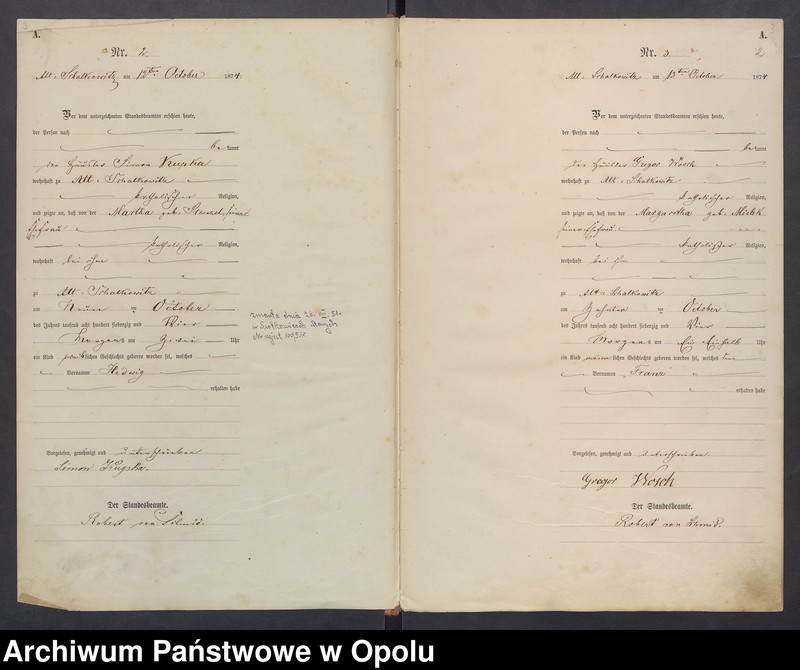 A.
Nr. 2
Alt-Schalkowitz am 12ten October 1874.
Vor dem unterzeichneten Standesbeamten erschien heute,
der Person nach
bekannt
der Häusler Simon Kupka
wohnhaft zu Alt-Schalkowitz
katholischer Religion,
und zeigte an, daß von der Martha geb. seine
Ehefrau
katholischer Religion,
wohnhaft bei ihm
zu Alt-Schalkowitz
am Neun ten October
des Jahres tausend acht hundert siebenzig und Vier
Morgens um Zwei Uhr
ein Kind weiblichen Geschlechts geboren worden sei, welches
Vornamen Hedwig
erhalten habe
Vorgelesen, genehmigt und unterschrieben
Simon Kupka.
Der Standesbeamte.
Robert von Schmid.
zmarła dnia
w Siołkowicach Starych
A.
2
Nr. 3
Alt-Schalkowitz am 13ten October 1874
Vor dem unterzeichneten Standesbeamten erschien heute,
der Person nach
bekannt
der Häusler Gregor Wosch
wohnhaft zu Alt-Schalkowitz
katholischer Religion,
und zeigte an, daß von der Margaretha geb.
seiner Ehefrau
katholischer Religion,
wohnhaft bei ihm
zu Alt-Schalkowitz
am Zehnten October
des Jahres tausend acht hundert siebenzig und Vier
Morgens um Uhr
ein Kind männlichen Geschlechts geboren worden sei, welches den
Vornamen Franz
erhalten habe
Vorgelesen, genehmigt und unterschrieben
Gregor Wosch
Der Standesbeamte.
Robert von Schmid.
Archiwum Państwowe w Opolu